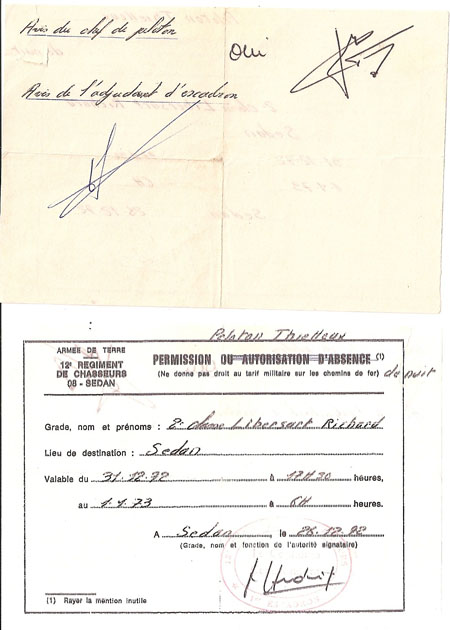 Avis du chef de peloton
Oui
Avis de l'adjudant d'escadron
Peloton Thietleux
ARMÉE DE TERRE
12e REGIMENT
DE CHASSEURS
08 - SEDAN
PERMISSION OU AUTORISATION D'ABSENCE (1)
de nuit
(Ne donne pas droit au tarif militaire sur les chemins de fer)
Grade, nom et prénoms : 2e classe Libersart Richard
Lieu de destination : Sedan
Valable du 31.12.72 à 17H30 heures,
au 1.1.73 à 6H heures.
A Sedan, le 28.12.72
(Grade, nom et fonction de l'autorité signataire)
(1) Rayer la mention inutile